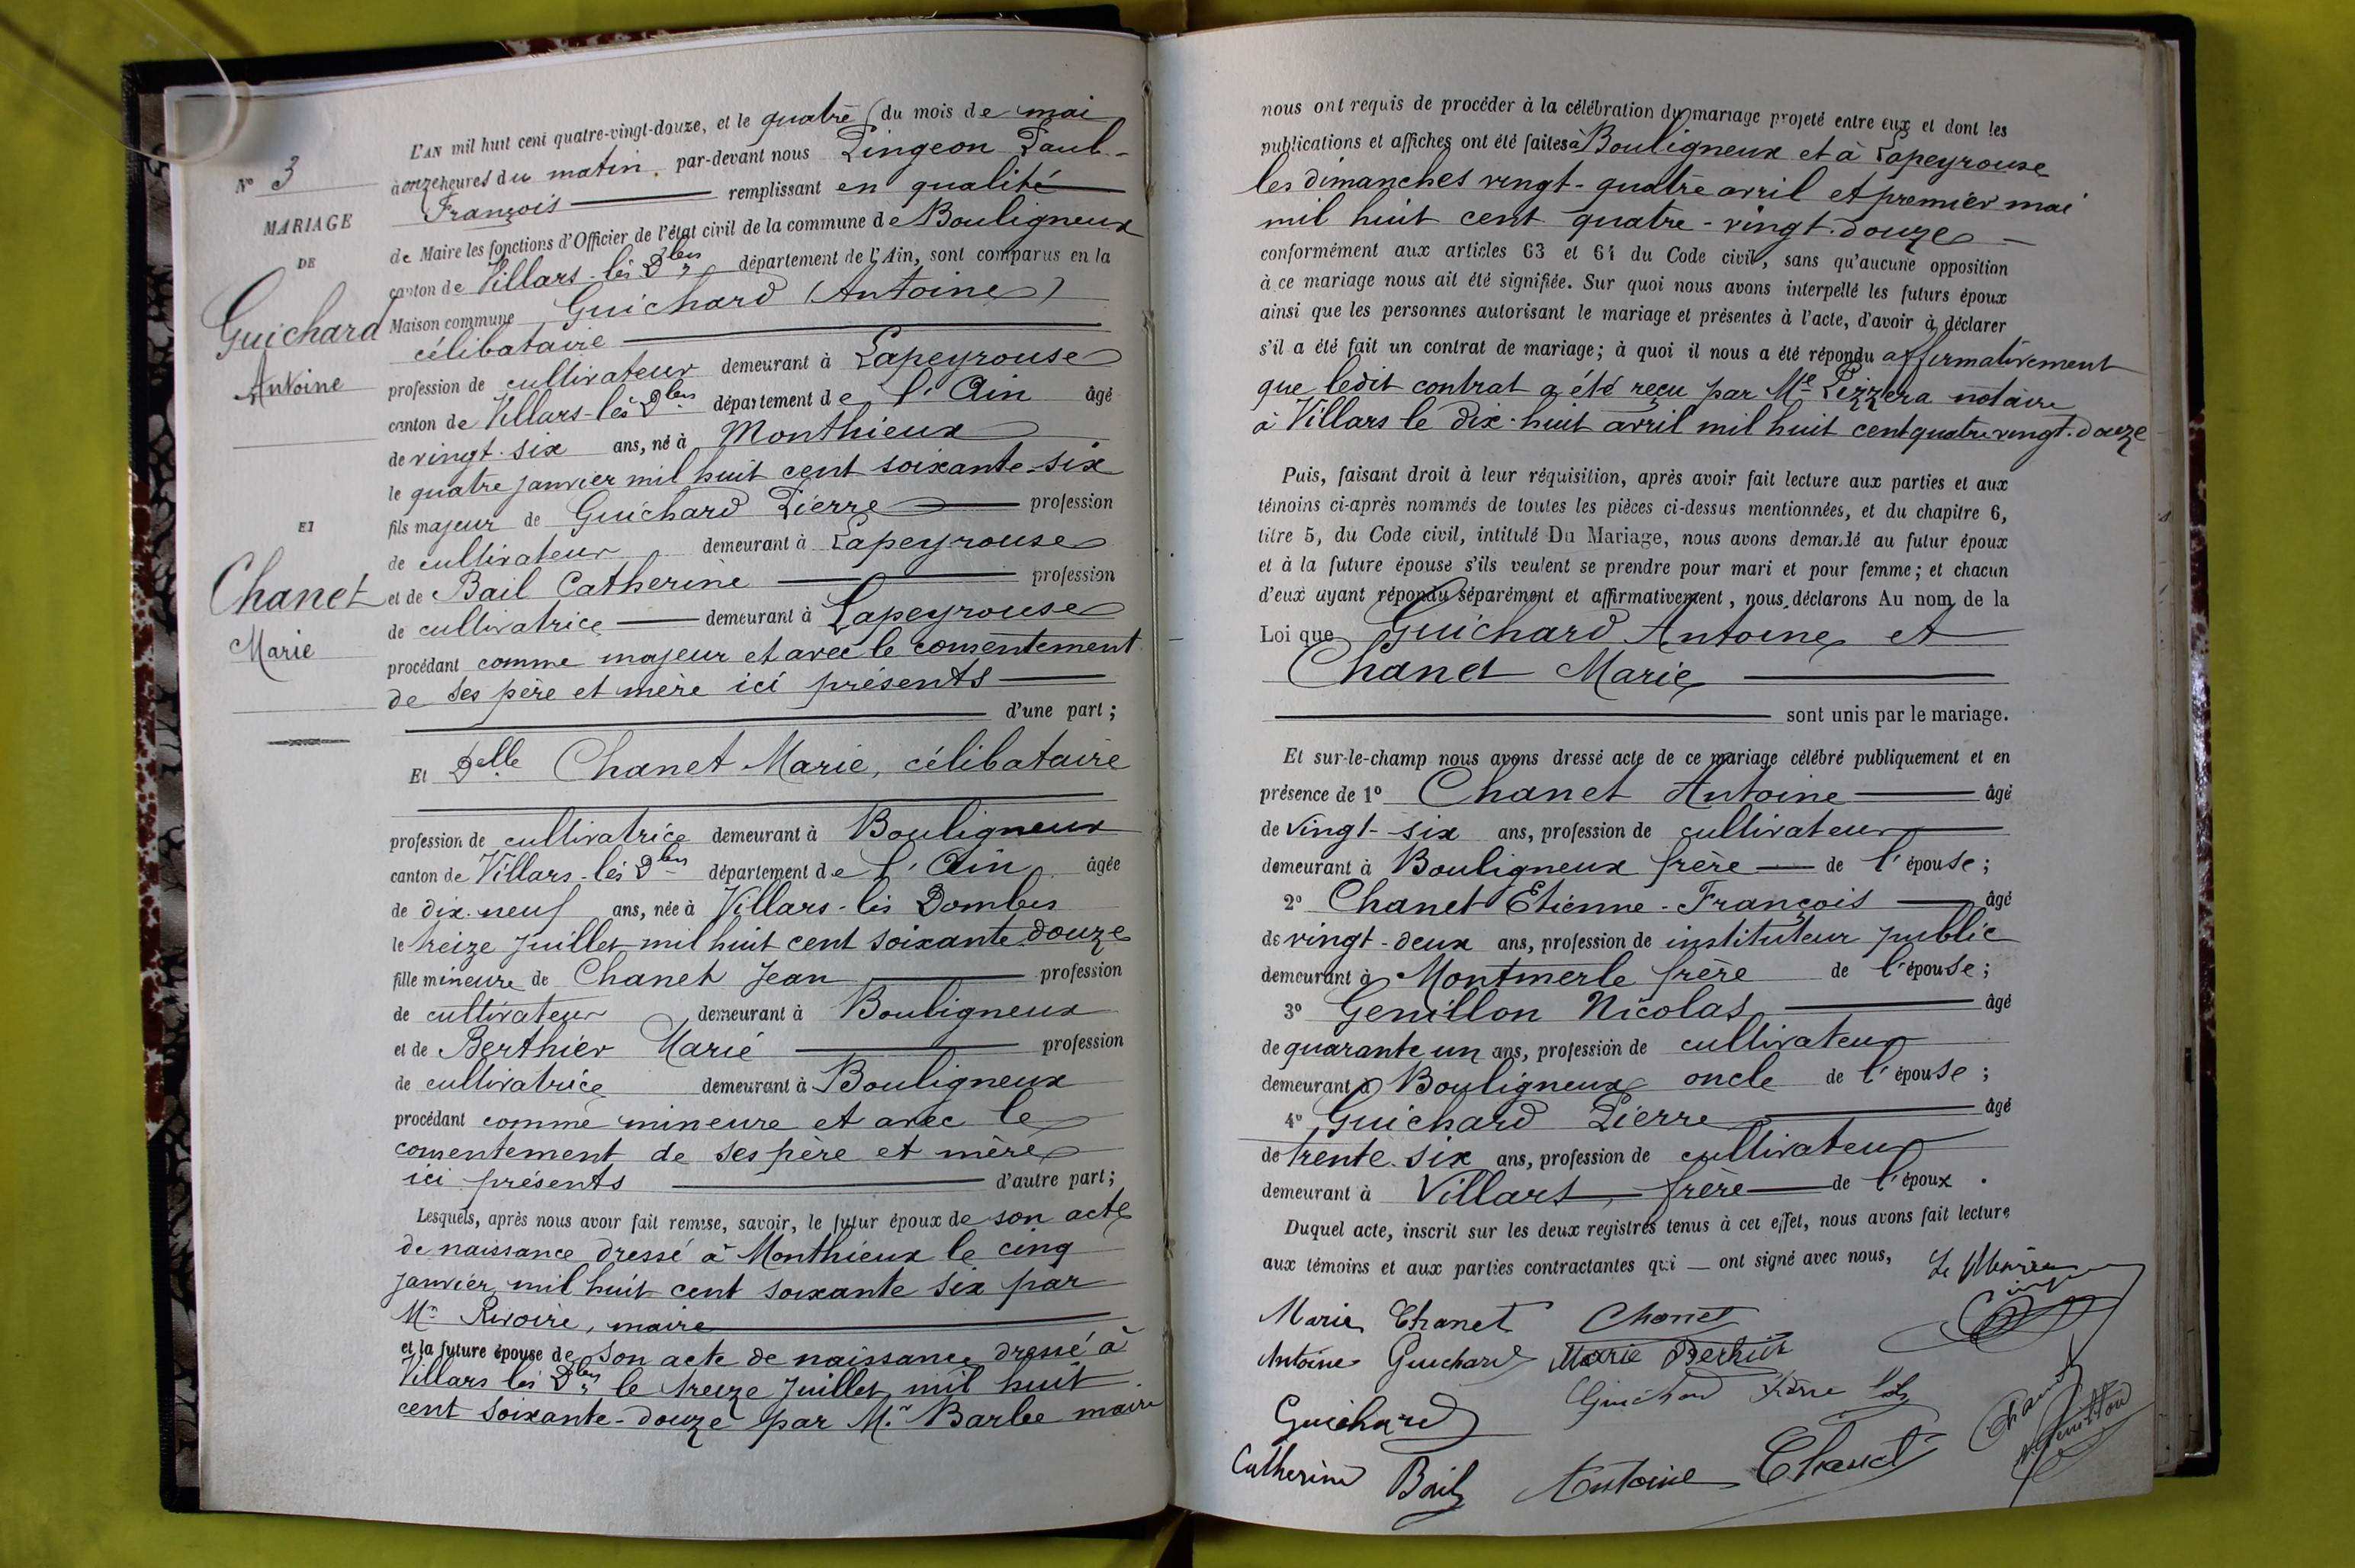 N° 3
MARIAGE
DE
Guichard
Antoine
ET
Chanet
Marie
L'AN mil huit cent quatre-vingt-douze, et le quatre du mois de mai
à onze heures du matin, par-devant nous Pingeon Paul-
François remplissant en qualité
de Maire les fonctions d'Officier de l'état civil de la commune de Bouligneux
canton de Villars-lès Dbes département de l'Ain, sont comparus en la
Maison commune Guichard (Antoine)
célibataire
profession de cultivateur demeurant à Lapeyrouse
canton de Villars-lès Dbes département de l'Ain âgé
de vingt-six ans, né à Monthieux
le quatre janvier mil huit cent soixante-six
fils majeur de Guichard Pierre profession
de cultivateur demeurant à Lapeyrouse
et de Bail Catherine profession
de cultivatrice demeurant à Lapeyrouse
procédant comme majeur et avec le consentement
de ses père et mère ici présents
d'une part ;
Et Delle Chanet Marie, célibataire
profession de cultivatrice demeurant à Bouligneux
canton de Villars-lès Dbes département de l'Ain âgée
de dix-neuf ans, née à Villars-lès Dombes
le treize juillet mil huit cent soixante douze
fille mineure de Chanet Jean profession
de cultivateur demeurant à Bouligneux
et de Berthier Marie profession
de cultivatrice demeurant à Bouligneux
procédant comme mineure et avec le
consentement de ses père et mère
ici présents d'autre part ;
Lesquels, après nous avoir fait remise, savoir, le futur époux de son acte
de naissance dressé à Monthieux le cinq
janvier mil huit cent soixante six par
Mr Rivoire, maire
et la future épouse de son acte de naissance dressé à
Villars lès Dbes le treize juillet mil huit
cent soixante-douze par Mr Barbe maire
nous ont requis de procéder à la célébration du mariage projeté entre eux et dont les
publications et affiches ont été faites à Bouligneux et à Lapeyrouse
les dimanches vingt-quatre avril et premier mai
mil huit cent quatre-vingt-douze
conformément aux articles 63 et 64 du Code civil, sans qu'aucune opposition
à ce mariage nous ait été signifiée. Sur quoi nous avons interpellé les futurs époux
ainsi que les personnes autorisant le mariage et présentes à l'acte, d'avoir à déclarer
s'il a été fait un contrat de mariage ; à quoi il nous a été répondu affirmativement
que ledit contrat a été reçu par Me Pizzera notaire
à Villars le dix-huit avril mil huit cent quatre vingt-douze
Puis, faisant droit à leur réquisition, après avoir fait lecture aux parties et aux
témoins ci-après nommés de toutes les pièces ci-dessus mentionnées, et du chapitre 6,
titre 5, du Code civil, intitulé Du Mariage, nous avons demandé au futur époux
et à la future épouse s'ils veulent se prendre pour mari et pour femme ; et chacun
d'eux ayant répondu séparément et affirmativement, nous déclarons Au nom de la
Loi que Guichard Antoine et
Chanet Marie
sont unis par le mariage.
Et sur-le-champ nous avons dressé acte de ce mariage célébré publiquement et en
présence de 1° Chanet Antoine âgé
de vingt-six ans, profession de cultivateur
demeurant à Bouligneux frère de l'épouse ;
2° Chanet Etienne-François âgé
de vingt-deux ans, profession de instituteur public
demeurant à Montmerle frère de l'épouse ;
3° Genillon Nicolas âgé
de quarante un ans, profession de cultivateur
demeurant à Bouligneux oncle de l'épouse ;
4° Guichard Pierre âgé
de trente-six ans, profession de cultivateur
demeurant à Villars frère de l'époux.
Duquel acte, inscrit sur les deux registres tenus à cet effet, nous avons fait lecture
aux témoins et aux parties contractantes qui ont signé avec nous,
Le Maire
Marie Chanet Chanet
Antoine Guichard Marie Berthier
Guichard Guichard Pierre
Catherine Bail Antoine Chanet